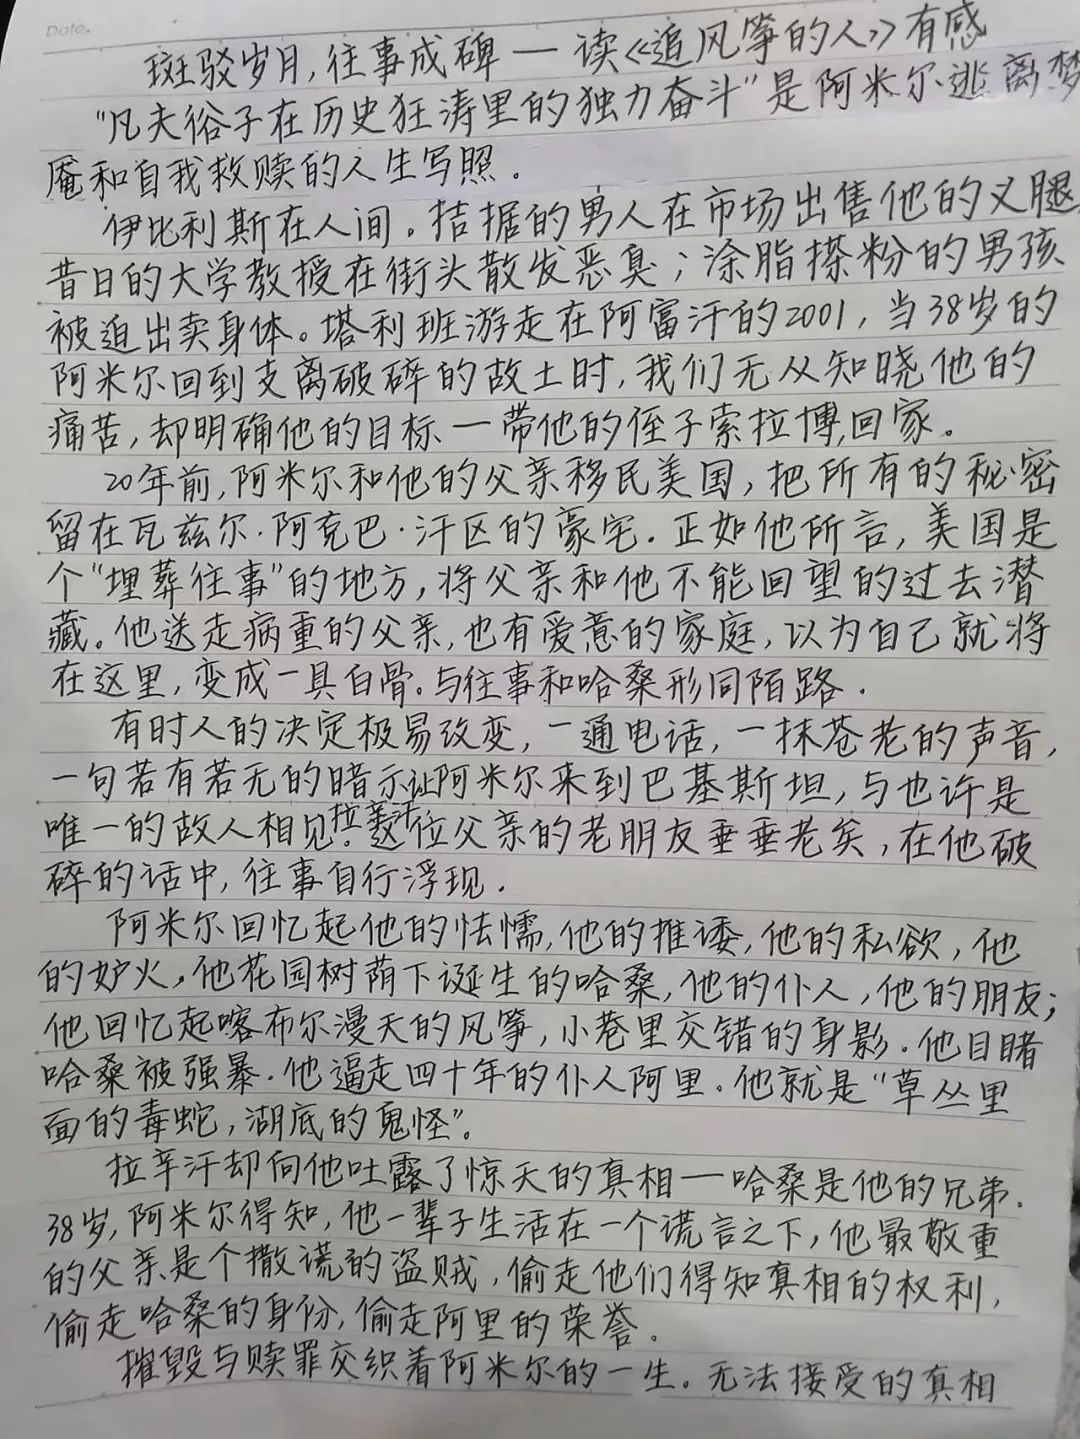 Date.
斑驳岁月,往事成碑—读《追风筝的人》有感
"凡夫俗子在历史狂涛里的独力奋斗"是阿米尔逃离梦
魇和自我救赎的人生写照.
伊比利斯在人间。拮据的男人在市场出售他的义腿
昔日的大学教授在街头散发恶臭;涂脂搽粉的男孩
被迫出卖身体。塔利班游走在阿富汗的2001,当38岁的
阿米尔回到支离破碎的故土时,我们无从知晓他的
痛苦,却明确他的目标—带他的侄子索拉博回家。
20年前,阿米尔和他的父亲移民美国,把所有的秘密
留在瓦兹尔·阿克巴·汗区的豪宅.正如他所言,美国是
个"埋葬往事"的地方,将父亲和他不能回望的过去潜
藏。他送走病重的父亲,也有爱意的家庭,以为自己就将
在这里,变成一具白骨.与往事和哈桑形同陌路.
有时人的决定极易改变,一通电话,一抹苍老的声音,
一句若有若无的暗示让阿米尔来到巴基斯坦,与也许是
唯一的故人相见.拉辛汗这位父亲的老朋友垂垂老矣,在他破
碎的话中,往事自行浮现.
阿米尔回忆起他的怯懦,他的推诿,他的私欲,他
的妒火,他花园树荫下诞生的哈桑,他的仆人,他的朋友;
他回忆起喀布尔漫天的风筝,小巷里交错的身影.他目睹
哈桑被强暴.他逼走四十年的仆人阿里.他就是"草丛里
面的毒蛇,湖底的鬼怪"。
拉辛汗却向他吐露了惊天的真相—哈桑是他的兄弟.
38岁,阿米尔得知,他一辈子生活在一个谎言之下,他最敬重
的父亲是个撒谎的盗贼,偷走他们得知真相的权利,
偷走哈桑的身份,偷走阿里的荣誉.
摧毁与赎罪交织着阿米尔的一生.无法接受的真相